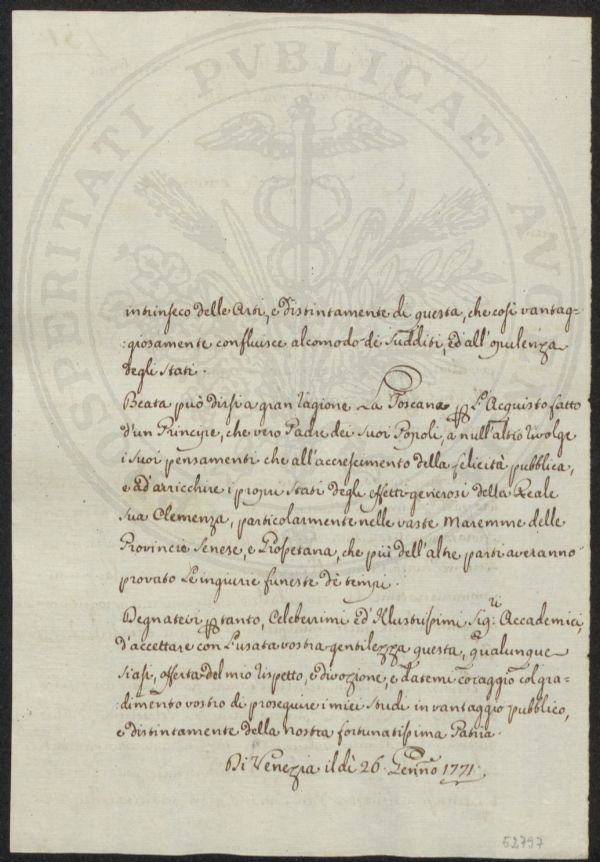 PROSPERITATI PVBLICAE AVGENDAE
intrinseco delle Arti, e distintamente di questa, che così vantag=
=giosamente confluisce al comodo de' Sudditi, ed all'opulenza
degli Stati.
Beata può dirsi a gran ragione La Toscana p L'Acquisto fatto
d'un Principe, che vero Padre dei Suoi Popoli, a null'altro rivolge
i Suoi pensamenti che all'accrescimento della felicità pubblica,
e ad'arricchire i proprii Stati degli effetti generosi della Reale
Sua Clemenza, particolarmente nelle vaste Maremme delle
Provincie Senese, e Grossetana, che più dell'altre parti averanno
provato Le ingiurie funeste de' tempi.
Degnatevi ptanto, Celeberrimi ed Illustrissimi Sig:ri Accademici,
d'accettare con L'usata vostra gentilezza questa, qualunque
Siasi, offerta del mio rispetto, e divozione, e datemi coraggio col gra=
dimento vostro di proseguire i miei Studi in vantaggio pubblico,
e distintamente della nostra fortunatissima Patria.
Di Venezia il dì 26. Genn:o 1771.
52797